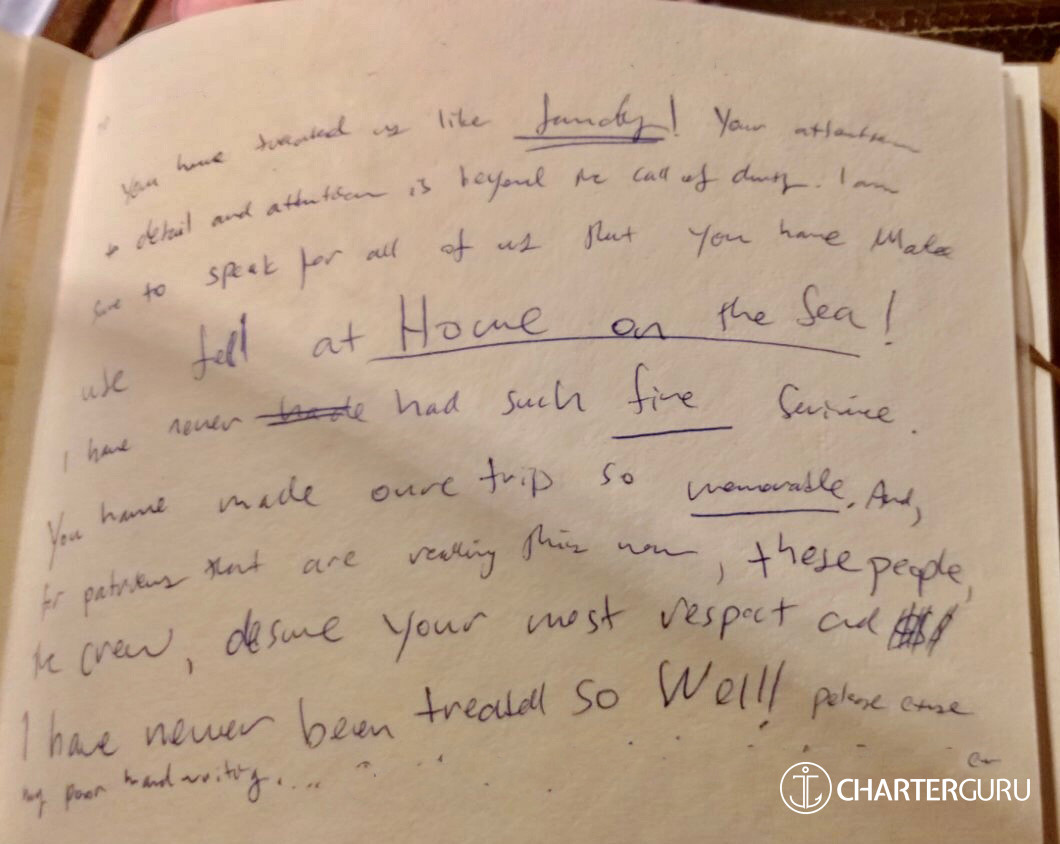 You have treated us like family! Your attention
to detail and attention is beyond the call of duty. I am
sure to speak for all of us that you have Make
use fell at Home on the Sea!
I have never had such fine Serivice.
You have made oure trip so memorable. And,
for patrons that are reading this now, these people,
the crew, desurve your most respect and $$$!
I have never been treated so Well!! please
my poor handwriting....
CHARTERGURU